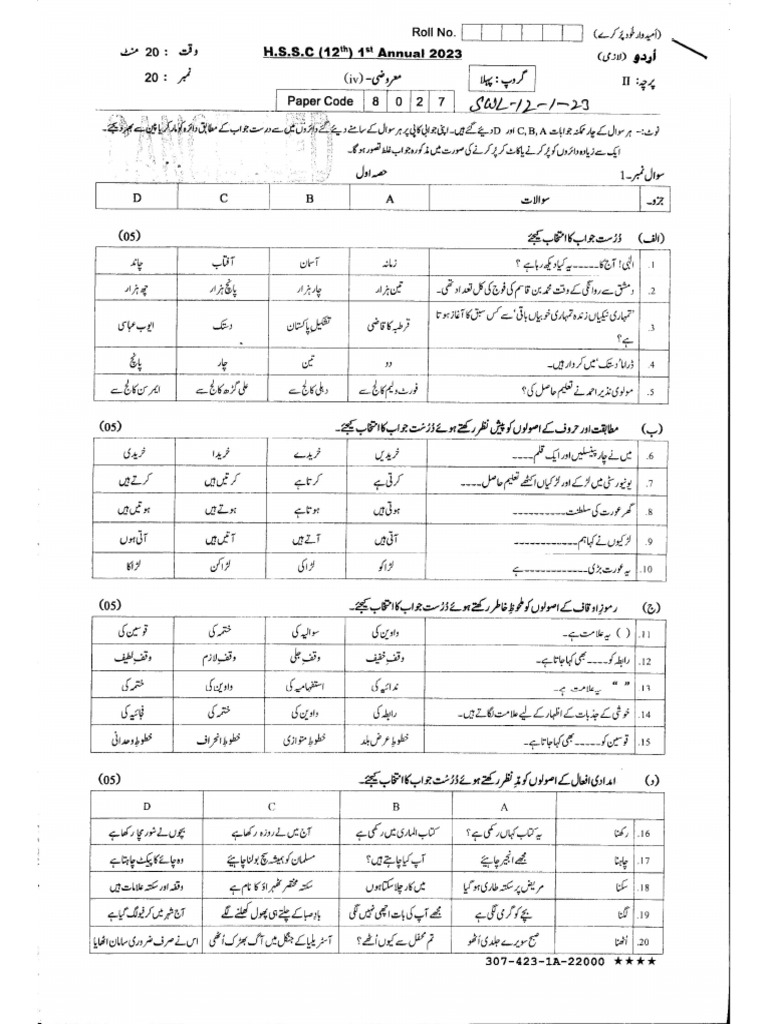 Roll No. (اُمیدوار خود پُر کرے)
اُردو (لازمی) H.S.S.C (12th) 1st Annual 2023 وقت : 20 منٹ
پرچہ: II گروپ: پہلا معروضی-(iv) نمبر: 20
Paper Code 8 0 2 7 SWL-12-1-23
نوٹ:- ہر سوال کے چار ممکنہ جوابات C, B, A اور D دیئے گئے ہیں۔ اپنی جوابی کاپی پر ہر سوال کے سامنے دیئے گئے دائروں میں سے درست جواب کے مطابق دائرہ کو مارکر یا پین سے بھر دیجئے۔
ایک سے زیادہ دائروں کو پُر کرنے یا کاٹ کر پُر کرنے کی صورت میں مذکورہ جواب غلط تصور ہو گا۔
سوال نمبر-1 حصہ اول
جزو۔ سوالات A B C D
(الف) دُرست جواب کا انتخاب کیجئے (05)
1. الٰہی! آج کا-----یہ کیا دیکھ رہا ہے ؟ زمانہ آسمان آفتاب چاند
2. دمشق سے روانگی کے وقت محمد بن قاسم کی فوج کی کل تعداد تھی۔ تین ہزار چار ہزار پانچ ہزار چھ ہزار
3. 'تمہاری نیکیاں زندہ تمہاری خوبیاں باقی' سے کس سبق کا آغاز ہوتا ہے؟ قرطبہ کا قاضی تشکیلِ پاکستان دستک ایوب عباسی
4. ڈراما 'دستک' میں کردار ہیں۔ دو تین چار پانچ
5. مولوی نذیر احمد نے تعلیم حاصل کی؟ فورٹ ولیم کالج سے دہلی کالج سے علی گڑھ کالج سے ایمرسن کالج سے
(ب) مطابقت اور حروف کے اصولوں کو پیش نظر رکھتے ہوئے دُرست جواب کا انتخاب کیجئے۔ (05)
6. میں نے چار پنسلیں اور ایک قلم---- خریدیں خریدے خریدا خریدی
7. یونیورسٹی میں لڑکے اور لڑکیاں اکٹھے تعلیم حاصل---- کرتی ہے کرتا ہے کرتیں ہیں کرتے ہیں
8. گھر عورت کی سلطنت------------ ہوتی ہیں ہوتا ہے ہوتے ہیں ہوتیں ہیں
9. لڑکیوں نے کہا ہم------------ آتی ہیں آتے ہیں آتیں ہیں آتی ہوں
10. یہ عورت بڑی------------ہے لڑاکو لڑاکی لڑاکن لڑاکا
(ج) رموزِ اوقاف کے اصولوں کو ملحوظِ خاطر رکھتے ہوئے دُرست جواب کا انتخاب کیجئے۔ (05)
11. ( ) یہ علامت ہے۔ واوین کی سوالیہ کی ختمہ کی قوسین کی
12. رابطہ کو----بھی کہا جاتا ہے۔ وقفِ خفیف وقفِ جلی وقفِ لازم وقفِ لطیف
13. " " یہ علامت ہے۔ ندائیہ کی استفہامیہ کی واوین کی ختمہ کی
14. خوشی کے جذبات کے اظہار کے لیے علامت لگاتے ہیں۔ رابطہ کی واوین کی ختمہ کی فجائیہ کی
15. قوسین کو-----بھی کہا جاتا ہے۔ خطوطِ عرض بلد خطوطِ متوازی خطوطِ انحراف خطوطِ وحدانی
(د) امدادی افعال کے اصولوں کو مدِ نظر رکھتے ہوئے دُرست جواب کا انتخاب کیجئے۔ (05)
A B C D
16. رکھنا یہ کتاب کہاں رکھی ہے؟ کتاب الماری میں رکھی ہے آج میں نے روزہ رکھا ہے بچوں نے شور مچا رکھا ہے
17. چاہنا مجھے انجیر چاہیے آپ کیا چاہتے ہیں؟ مسلمان کو ہمیشہ سچ بولنا چاہیئے وہ چائے کا پیکٹ چاہتا ہے
18. سکنا مریض پر سکتہ طاری ہو گیا میں کار چلا سکتا ہوں سکتہ مختصر ٹھہراؤ کا نام ہے وقفہ اور سکتہ علامات ہیں
19. لگنا بچے کو گرمی لگی ہے مجھے آپ کی بات اچھی نہیں لگی بادِ صبا کے چلتے ہی پھول کھلنے لگے آج شہر میں کرفیو لگ گیا ہے
20. اُٹھنا صبح سویرے جلدی اُٹھو تم محفل سے کیوں اُٹھے؟ آسٹریلیا کے جنگل میں آگ بھڑک اُٹھی اس نے صرف ضروری سامان اٹھایا
307-423-1A-22000 ★★★★